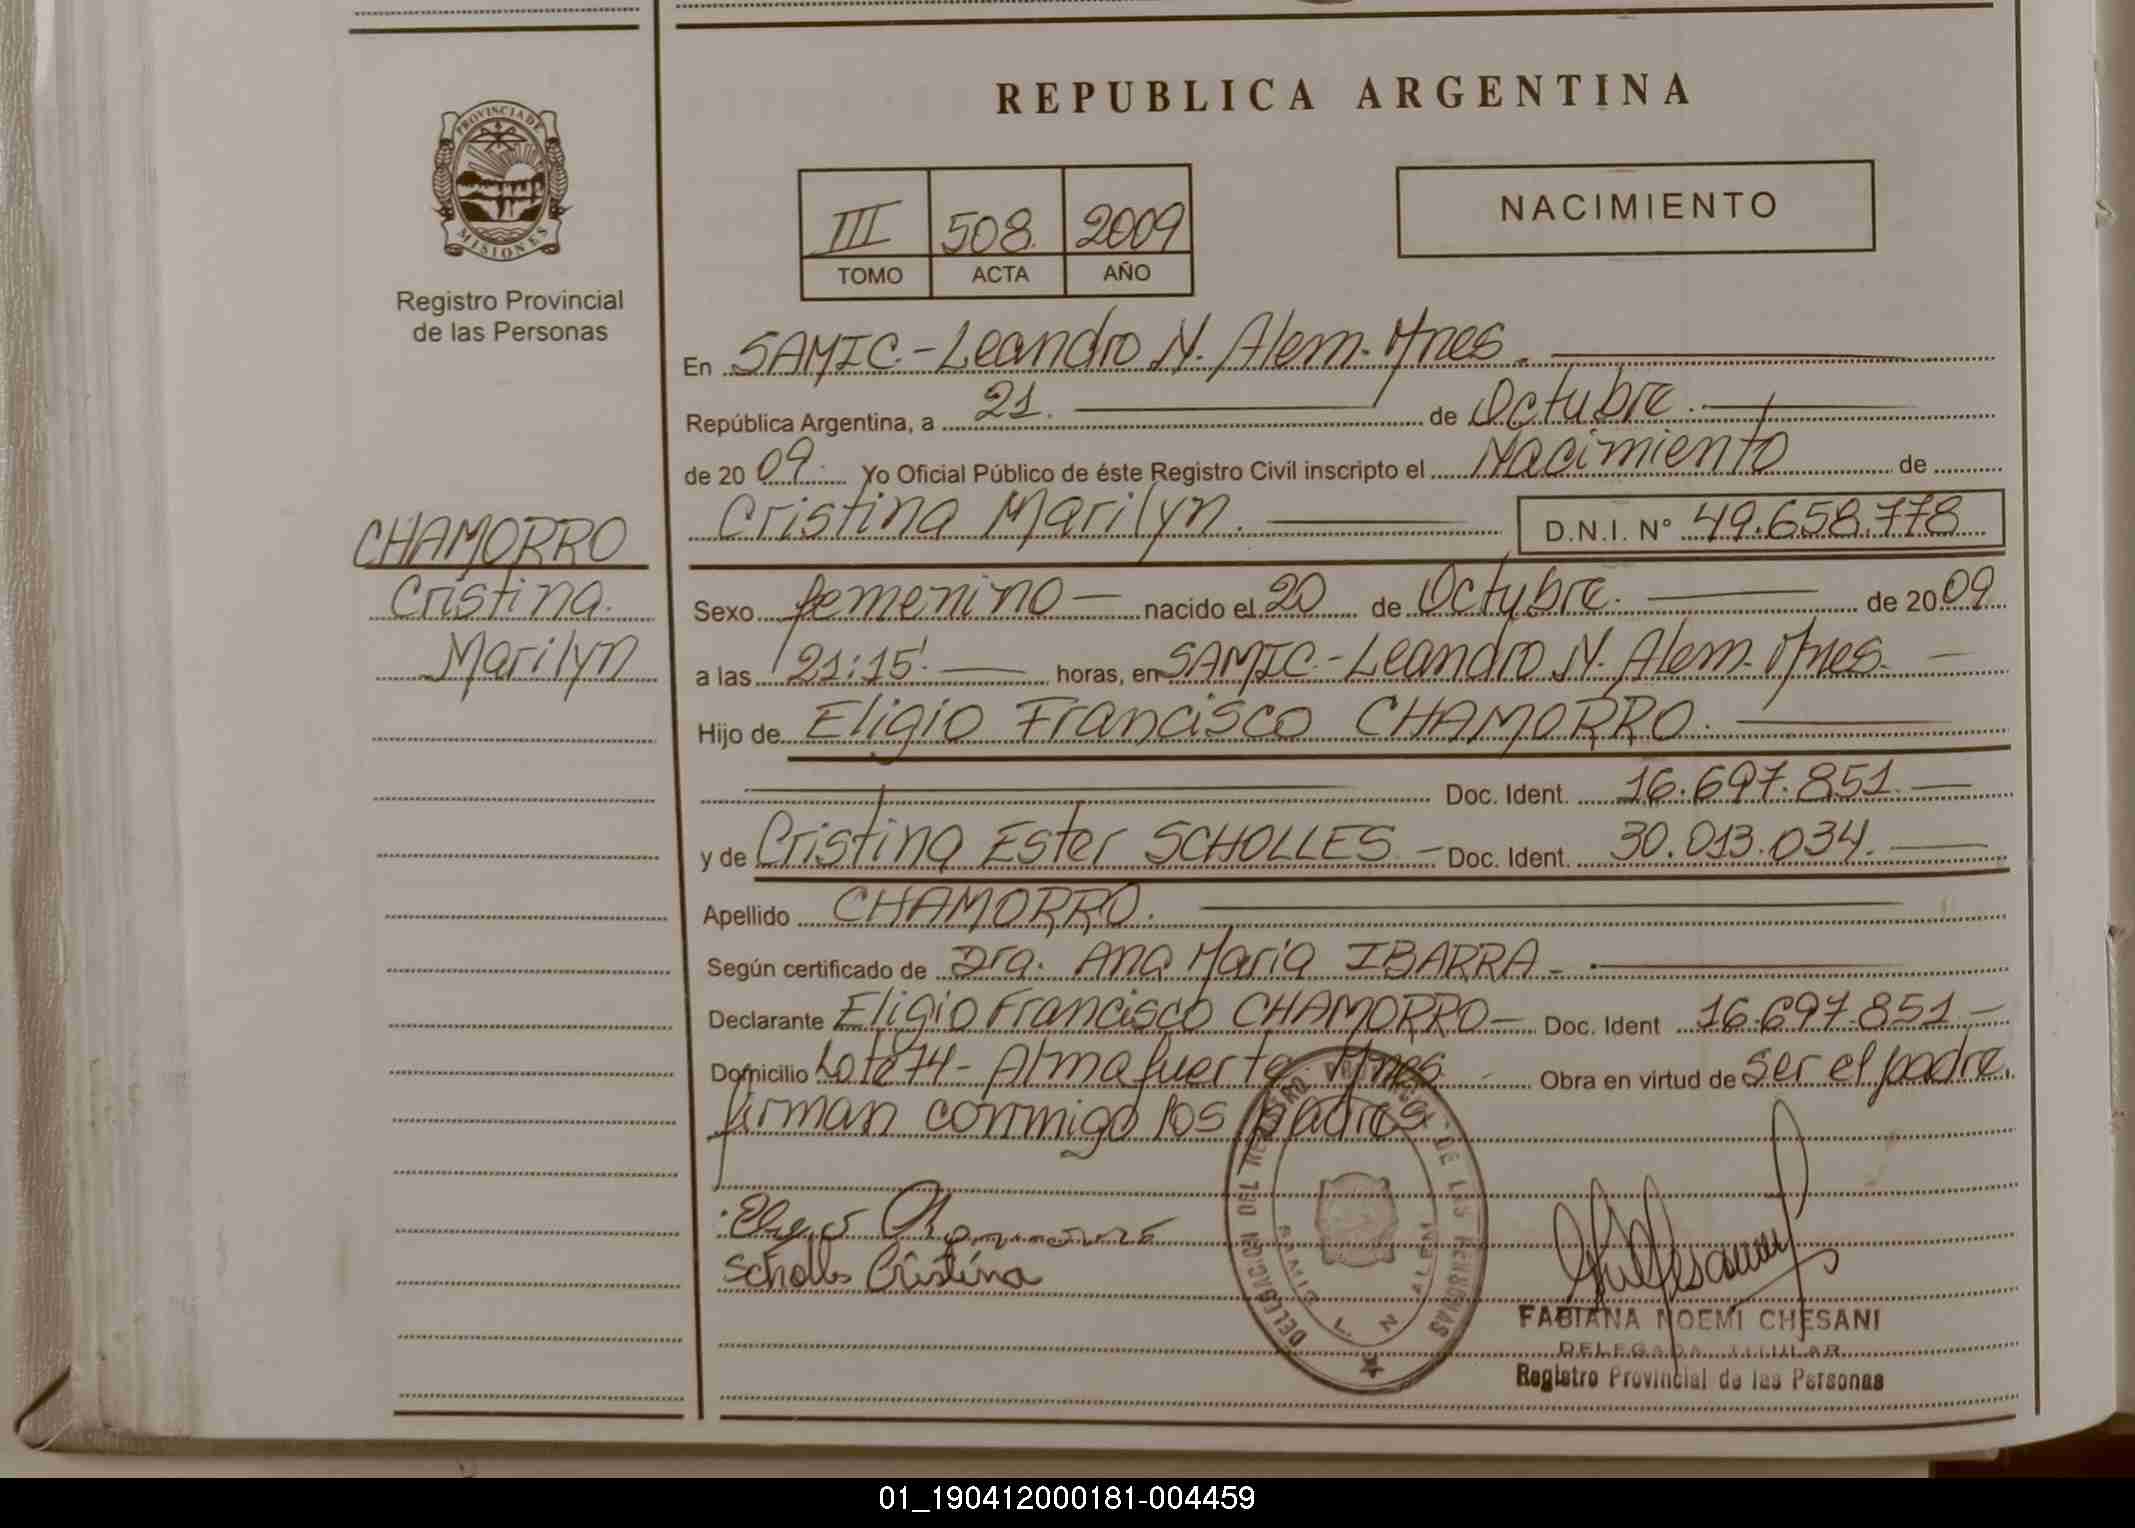 REPUBLICA ARGENTINA
PROVINCIA DE
MISIONES
Registro Provincial
de las Personas
III 508. 2009
TOMO ACTA AÑO
NACIMIENTO
En SAMIC.-Leandro N. Alem. Mnes.
República Argentina, a 21. de Octubre.
de 2009. Yo Oficial Público de éste Registro Civil inscripto el Nacimiento de
Cristina Marilyn. D.N.I. Nº 49.658.778
CHAMORRO
Cristina.
Marilyn
Sexo femenino nacido el 20 de Octubre. de 2009
a las 21:15'. horas, en SAMIC.-Leandro N. Alem. Mnes.
Hijo de Eligio Francisco CHAMORRO.
Doc. Ident. 16.697.851.
y de Cristina Ester SCHOLLES - Doc. Ident. 30.013.034.
Apellido CHAMORRO.
Según certificado de Dra. Ana Maria IBARRA -
Declarante Eligio Francisco CHAMORRO- Doc. Ident 16.697.851-
Domicilio Lote 74- Almafuerte. Mnes - Obra en virtud de ser el padre.
firman conmigo los padres
Scholles Cristina
DELEGACION DEL REGISTRO PROVINCIAL DE LAS PERSONAS
L. N. ALEM
FABIANA NOEMI CHESANI
DELEGADA TITULAR
Registro Provincial de las Personas
01_190412000181-004459